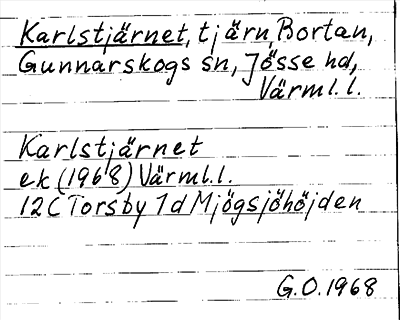 Karlstjärnet, tjärn, Bortan,
Gunnarskogs sn, Jösse hd,
Värml. l.
Karlstjärnet
ek (1968) Värml. l.
12C Torsby 1d Mjögsjöhöjden
G.O. 1968